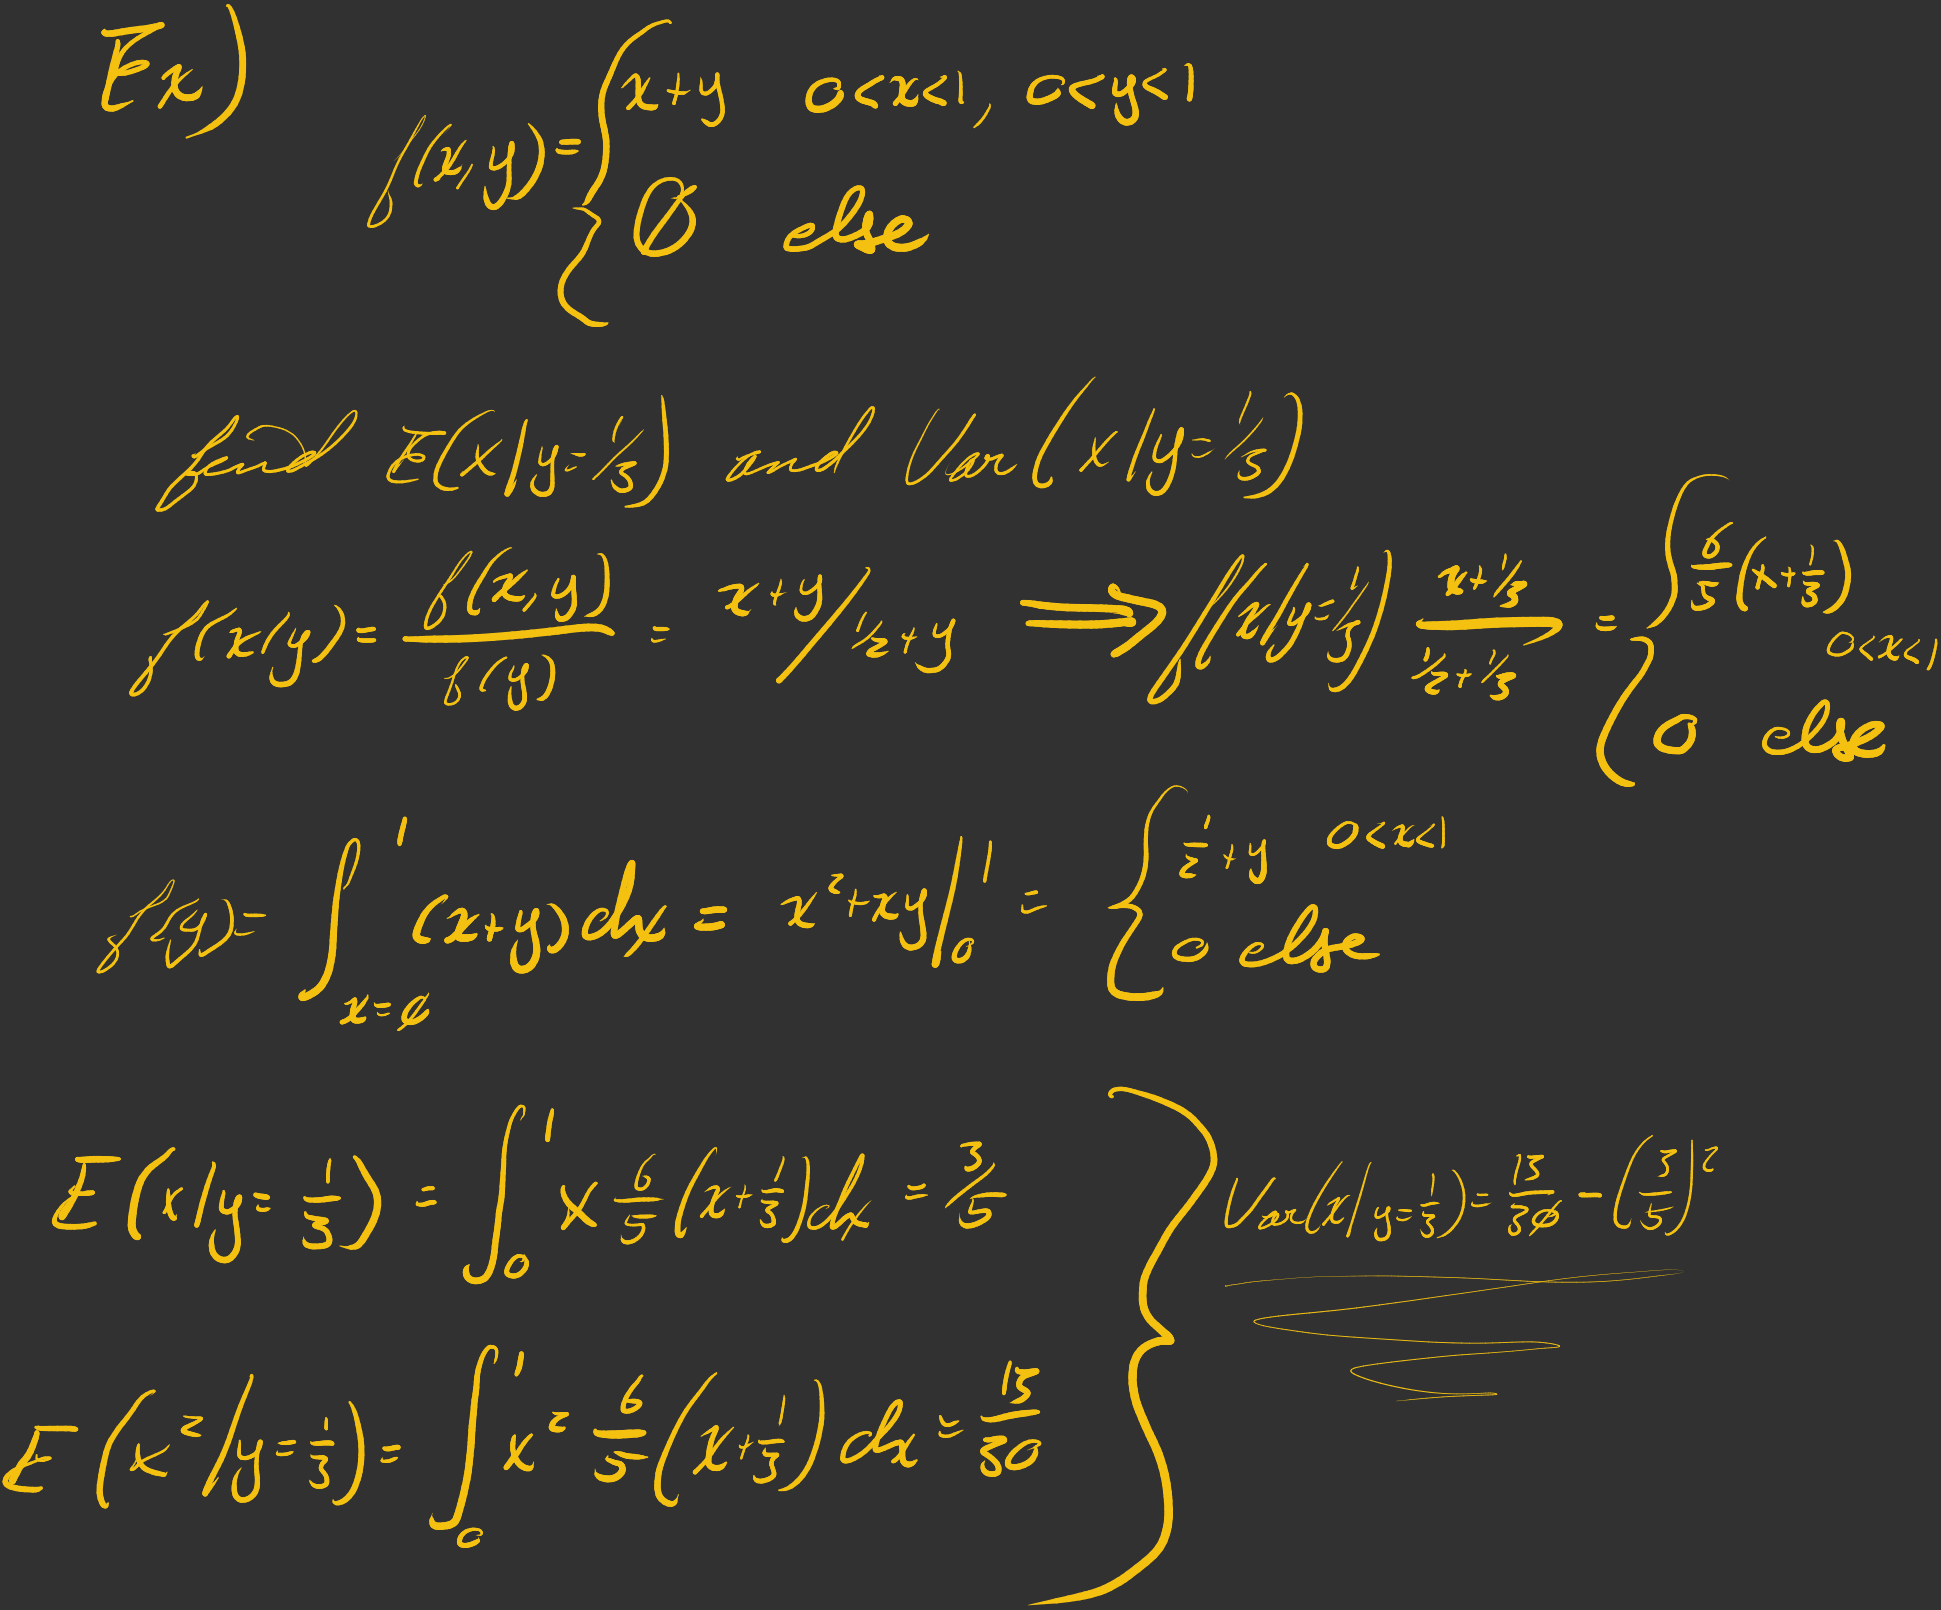 Ex)
f(x,y) = { x+y 0<x<1, 0<y<1
0 else
find E(x|y=1/3) and Var(x|y=1/3)
f(x|y) = f(x,y) / f(y) = x+y / 1/2+y ⟹ f(x|y=1/3) x+1/3 / 1/2+1/3 = { 6/5 (x+1/3) 0<x<1
0 else
f(y) = ∫_{x=0}^{1} (x+y) dx = x²+xy |_0^1 = { 1/2+y 0<x<1
0 else
E(x|y=1/3) = ∫_0^1 x 6/5 (x+1/3) dx = 3/5
Var(x|y=1/3) = 13/30 - (3/5)²
E(x²|y=1/3) = ∫_0^1 x² 6/5 (x+1/3) dx = 13/30